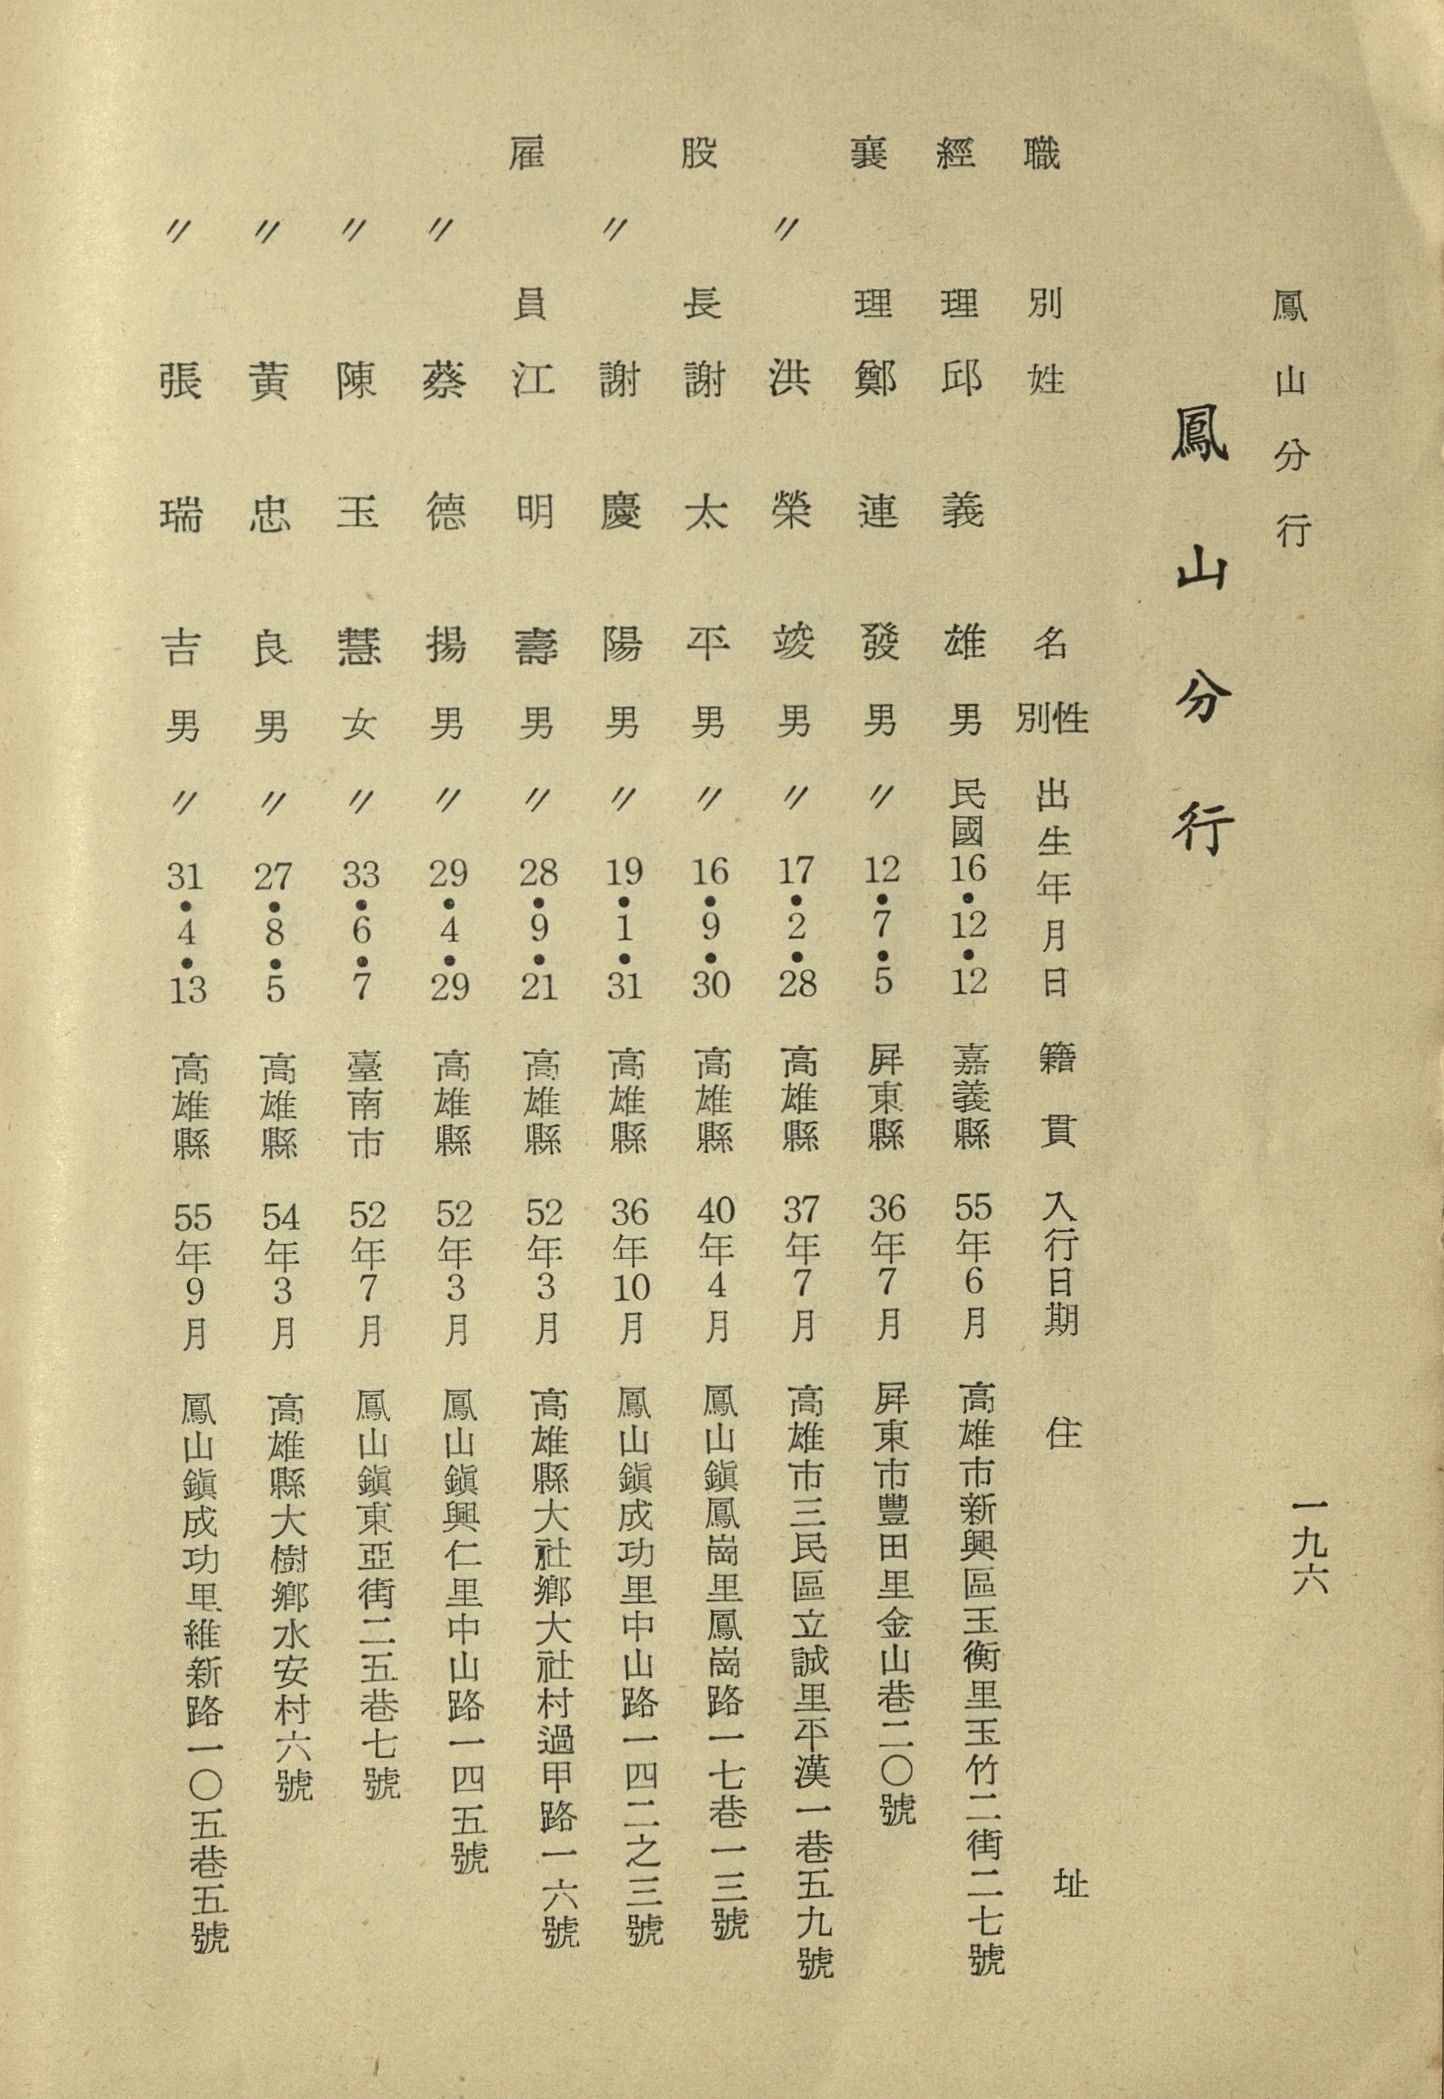 鳳山分行
一九六
鳳山分行
職別 姓名 性別 出生年月日 籍貫 入行日期 住址
經理 邱義雄 男 民國16•12•12 嘉義縣 55年6月 高雄市新興區玉衡里玉竹二街二七號
襄理 鄭連發 男 〃12•7•5 屛東縣 36年7月 屛東市豐田里金山巷二〇號
〃 洪榮竣 男 〃17•2•28 高雄縣 37年7月 高雄市三民區立誠里平漢一巷五九號
股長 謝太平 男 〃16•9•30 高雄縣 40年4月 鳳山鎭鳳崗里鳳崗路一七巷一三號
〃 謝慶陽 男 〃19•1•31 高雄縣 36年10月 鳳山鎭成功里中山路一四二之三號
雇員 江明壽 男 〃28•9•21 高雄縣 52年3月 高雄縣大社鄉大社村過甲路一六號
〃 蔡德揚 男 〃29•4•29 高雄縣 52年3月 鳳山鎭興仁里中山路一四五號
〃 陳玉慧 女 〃33•6•7 臺南市 52年7月 鳳山鎭東亞街二五巷七號
〃 黃忠良 男 〃27•8•5 高雄縣 54年3月 高雄縣大樹鄉水安村六號
〃 張瑞吉 男 〃31•4•13 高雄縣 55年9月 鳳山鎭成功里維新路一〇五巷五號